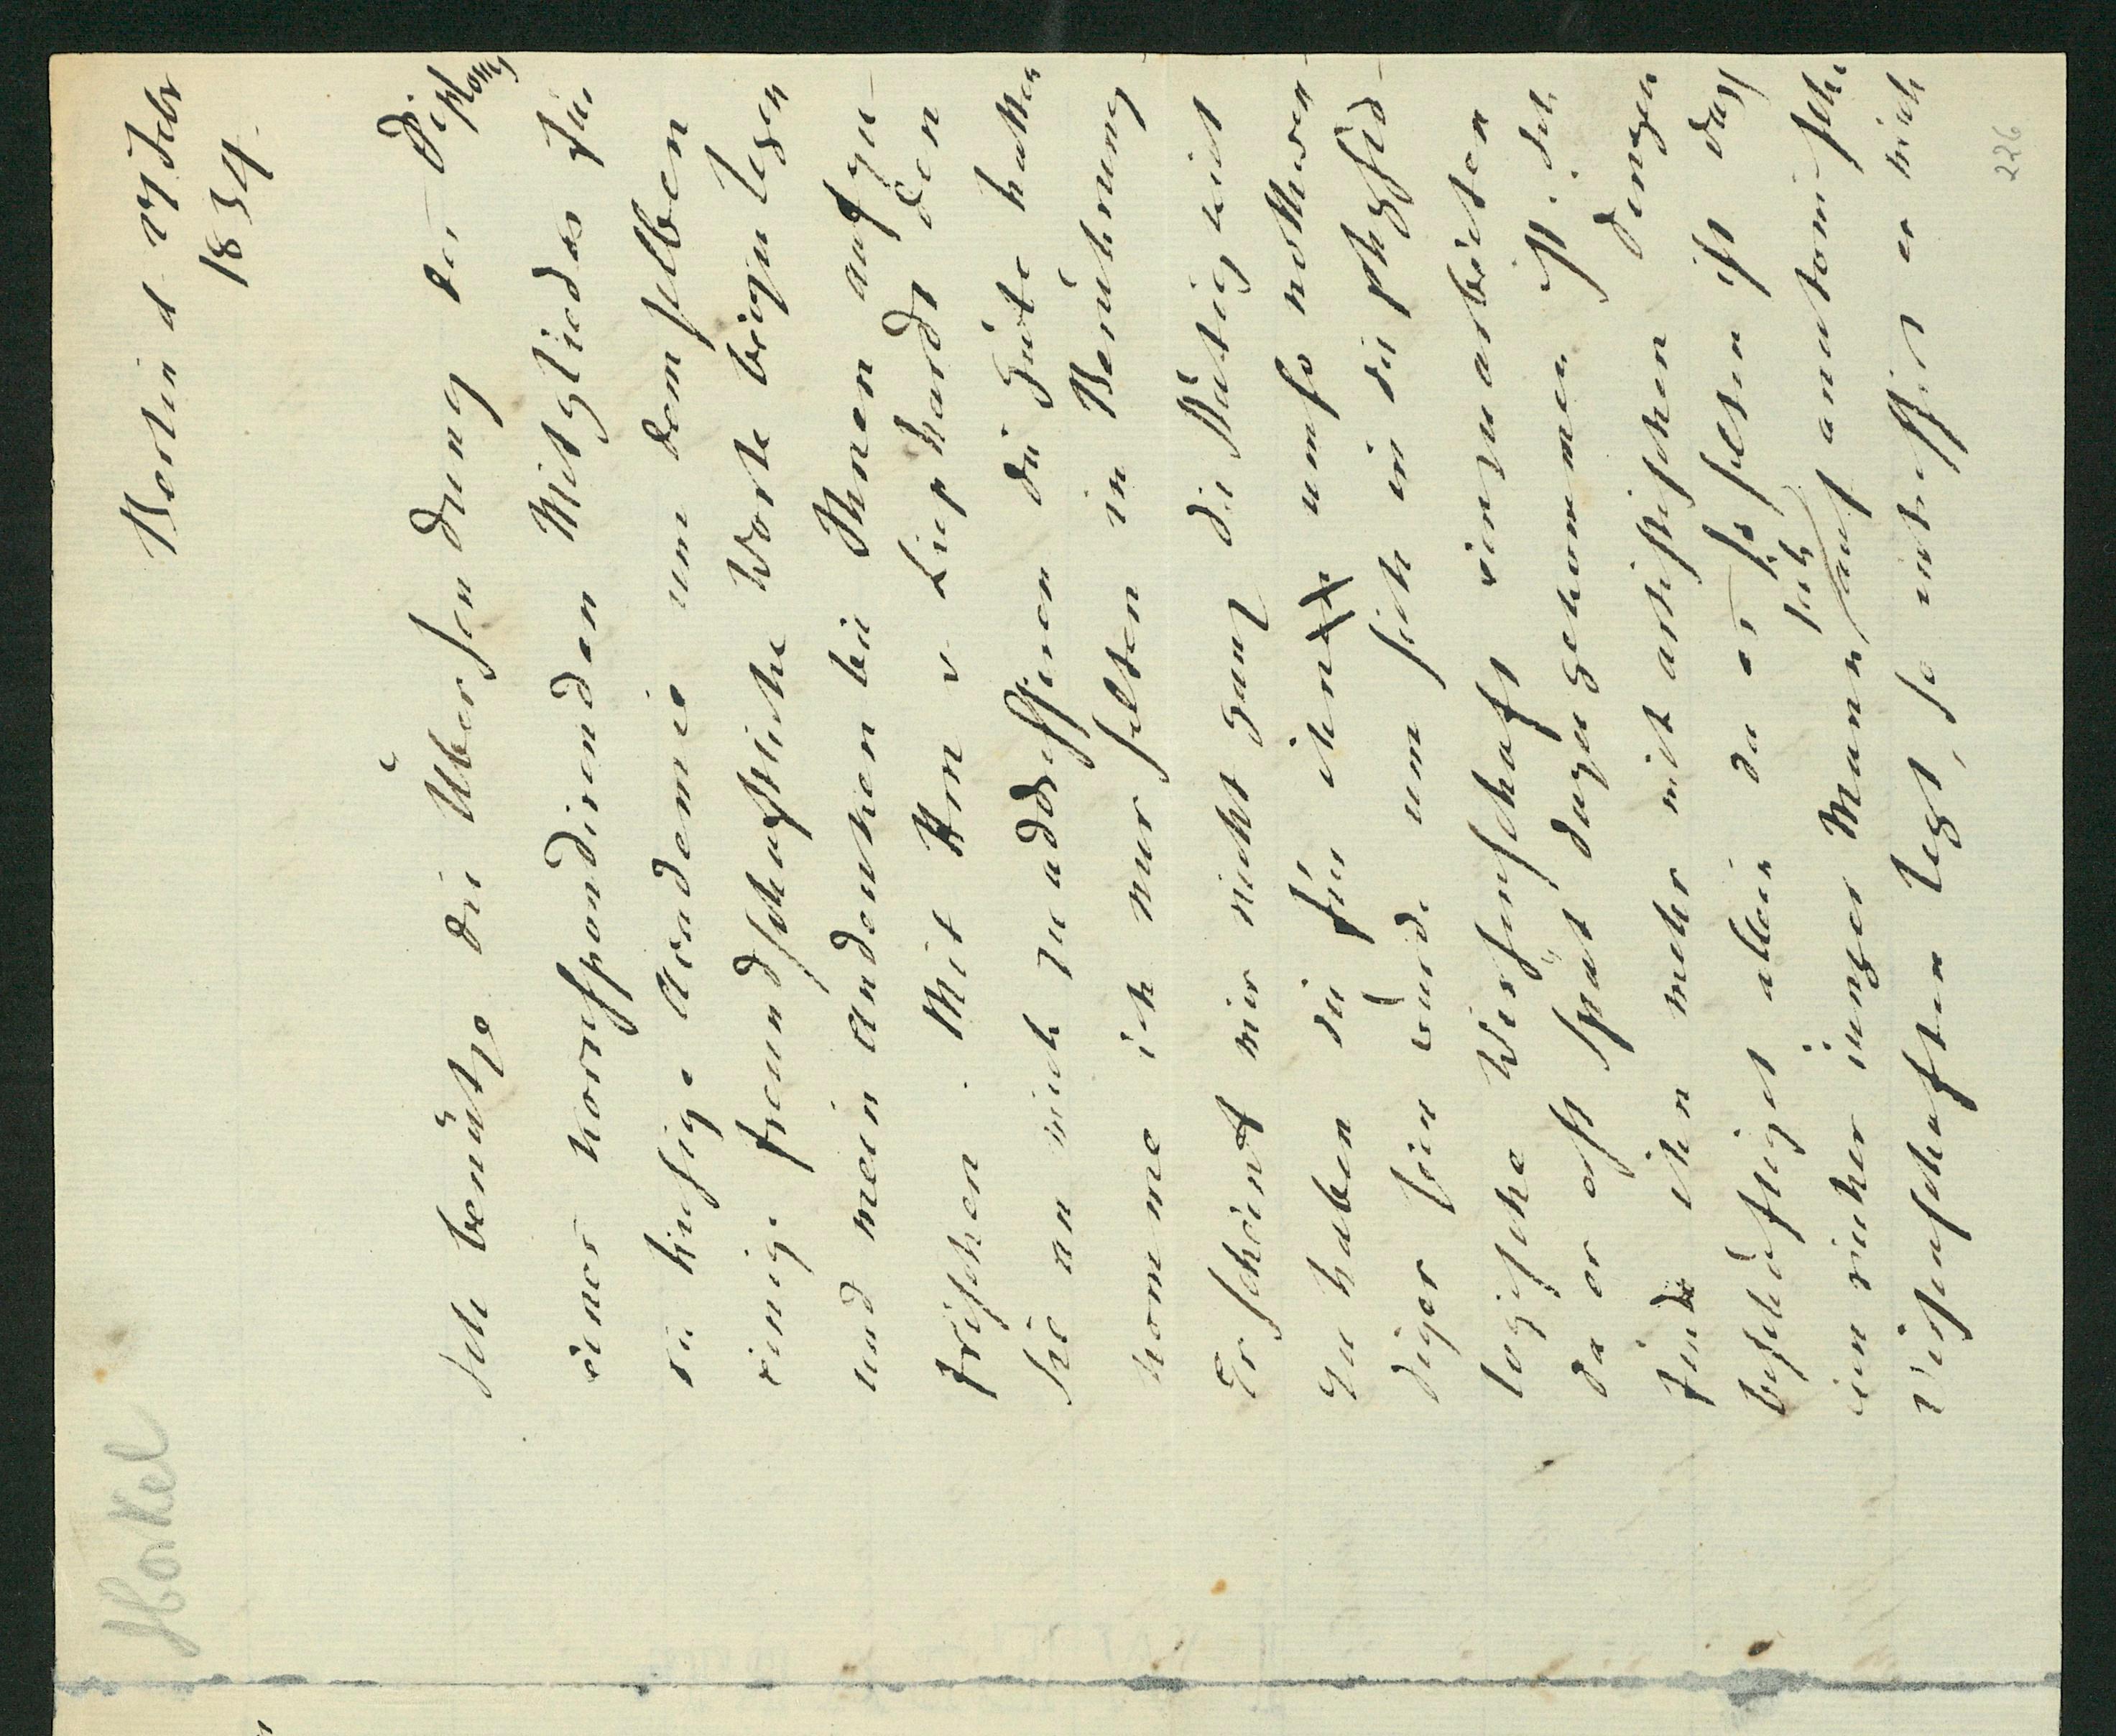 Horkel
Berlin d 27 Febr
1834.
Ich benutze die Übersendung des Diploms
eines korrespondirenden Mitgliedes für
die hiesige Academie um demselben
einige freundschaftliche Worte beizulegen
und mein Andenken bei Ihnen aufzu-
frischen. Mit Hrn v Liephardt den
Sie an mich zu addressiren die Güte hatten
komme ich nur selten in Berührung
Er scheint mir nicht ganz die Stätigkeit
zu haben die für ihn umso nothwen-
diger sein würde um sich in die physio-
logische Wissenschaft einzuarbeiten
da er erst spät dazugekommen ist. Ich
finde ihn mehr mit artistischen Dingen
beschäftiget allein da es so selten ist dass
ein reicher junger Mann sich auf anatomische
Wissenschaften legt, so intressirt er mich
226